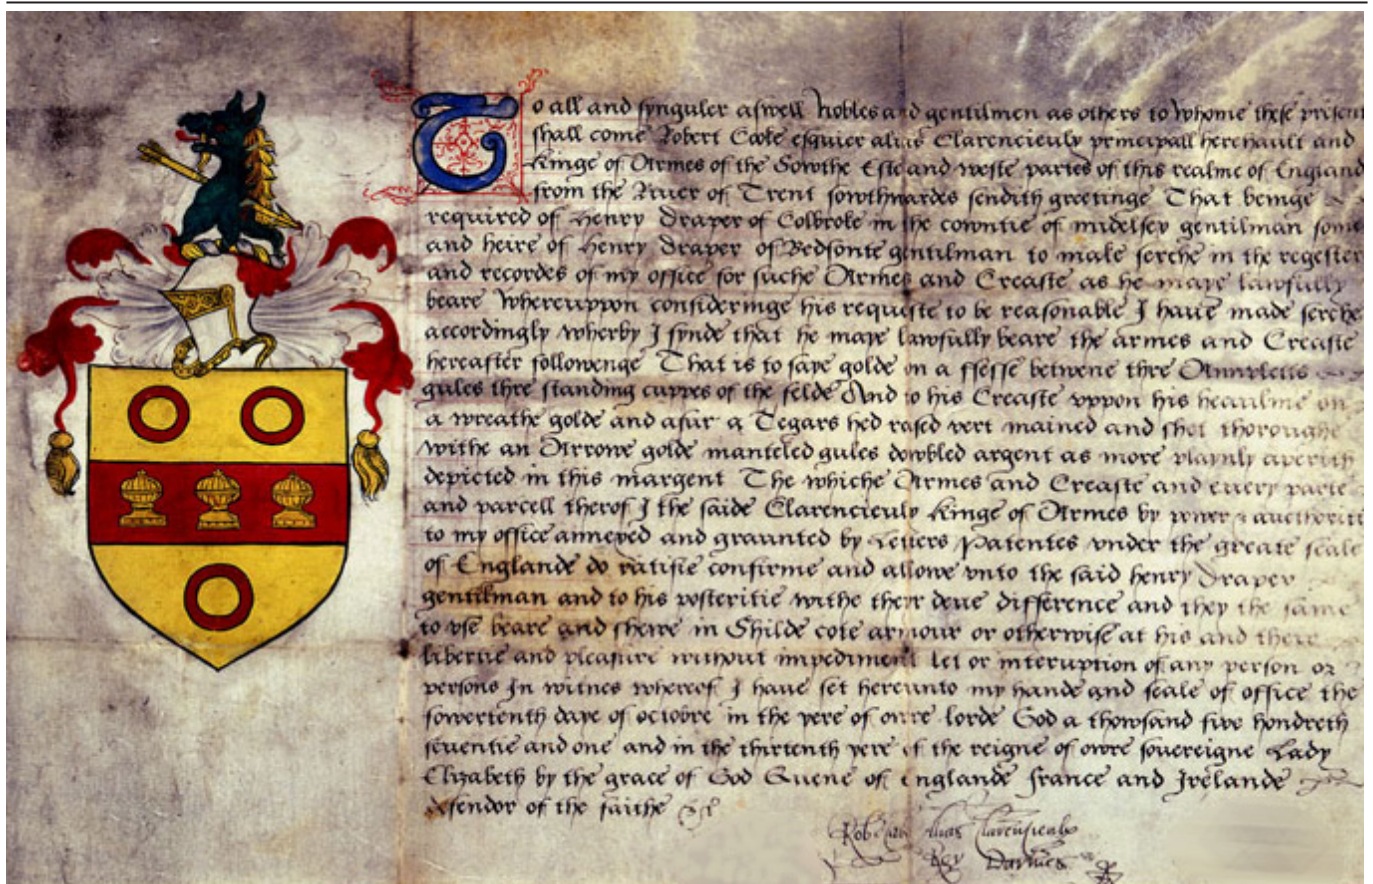 To all and synguler aswell Nobles and gentilmen as others to whome these present
shall come Robert Cooke esquier alias Clarencieulx principall herehault and
Kinge of Armes of the Sowthe Este and weste partes of this realme of England
from the River of Trent sowthwardes sendith greetinge That beinge
required of Henry Draper of Colbroke in the cowntie of midelsex gentilman sonne
and heire of Henry Draper of Bedfonte gentilman to make serche in the regester
and recordes of my office for suche Armes and Creaste as he maye lawfully
beare Whereuppon consideringe his requeste to be reasonable I have made serche
accordingly wherby I fynde that he maye lawfully beare the armes and Creaste
hereafter followenge That is to saye golde on a ffesse betwene thre Annvletts
gules thre standing cuppes of the felde And to his Creaste vppon his heaulme on
a wreathe golde and asur a Tegars hed rased vert mained and shot thoroughe
withe an Arrowe golde manteled gules dowbled argent as more playnly aperith
depicted in this margent The whiche Armes and Creaste and every parte
and parcell therof I the saide Clarencieulx Kinge of Armes by power & aucthoriti
to my office annexed and graunted by Letters Patentes vnder the greate seale
of Englande do ratifie confirme and allowe vnto the said henry Draper
gentilman and to his posteritie withe their deue difference and they the same
to vse beare and shewe in Shilde cote armour or otherwise at his and there
libertie and pleasure without impediment let or interuption of any person or
persons In witnes whereof I have set hereunto my hande and seale of office the
fowertenth daye of octobre in the yere of owre lorde God a thowsand five hondreth
seuentie and one and in the thirtenth yere of the reigne of owre souereigne Lady
Elizabeth by the grace of God Quene of Englande france and Irelande
defendor of the faithe &c
Rob alias Clarencieulx
Roy Darmes